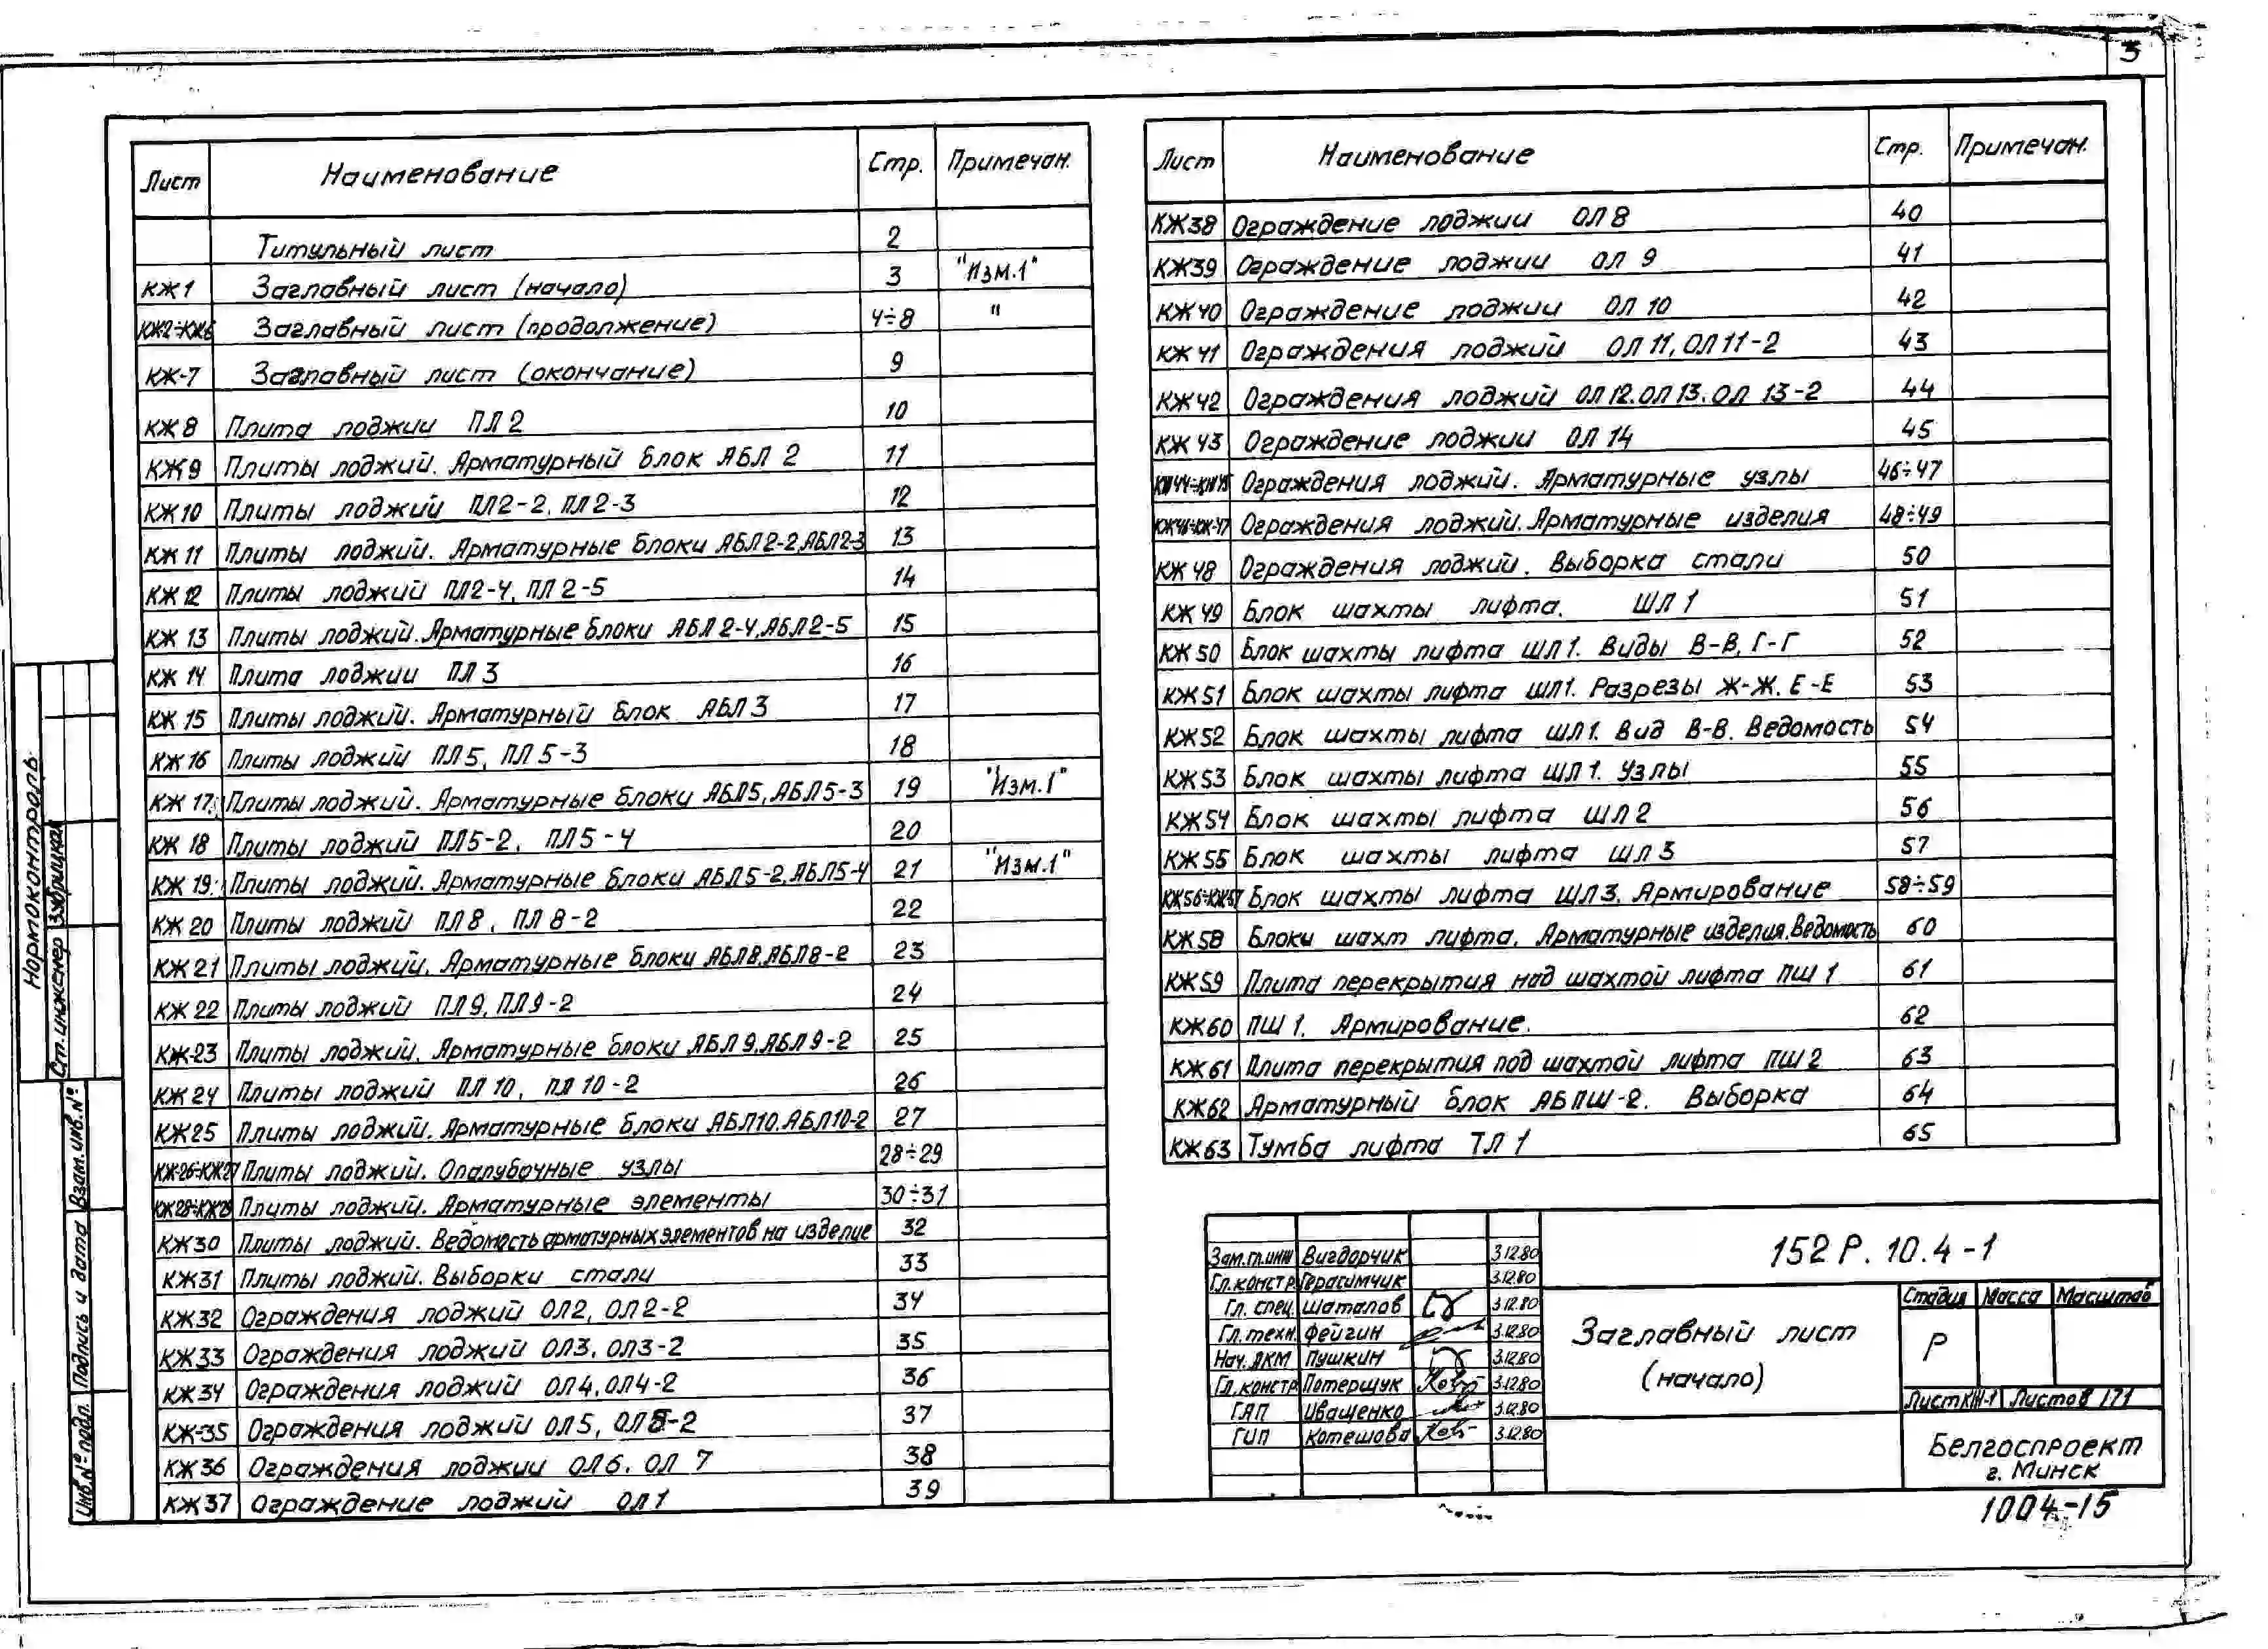 3
Лист Наименование Стр. Примечан.
Титульный лист 2
КЖ1 Заглавный лист (начало) 3 "Изм.1"
КЖ2÷КЖ6 Заглавный лист (продолжение) 4÷8 "
КЖ-7 Заглавный лист (окончание) 9
КЖ8 Плита лоджии ПЛ2 10
КЖ9 Плиты лоджий. Арматурный блок АБЛ 2 11
КЖ10 Плиты лоджий ПЛ2-2, ПЛ2-3 12
КЖ 11 Плиты лоджий. Арматурные блоки АБЛ2-2, АБЛ2-3 13
КЖ 12 Плиты лоджий ПЛ2-4, ПЛ2-5 14
КЖ 13 Плиты лоджий. Арматурные блоки АБЛ2-4, АБЛ2-5 15
КЖ 14 Плита лоджии ПЛ3 16
КЖ 15 Плиты лоджий. Арматурный блок АБЛ3 17
КЖ 16 Плиты лоджий ПЛ5, ПЛ5-3 18
КЖ 17 Плиты лоджий. Арматурные блоки АБЛ5, АБЛ5-3 19 "Изм.1"
КЖ 18 Плиты лоджий ПЛ5-2, ПЛ5-4 20
КЖ 19 Плиты лоджий. Арматурные блоки АБЛ5-2, АБЛ5-4 21 "Изм.1"
КЖ 20 Плиты лоджий ПЛ8, ПЛ8-2 22
КЖ 21 Плиты лоджий. Арматурные блоки АБЛ8, АБЛ8-2 23
КЖ 22 Плиты лоджий ПЛ9, ПЛ9-2 24
КЖ-23 Плиты лоджий. Арматурные блоки АБЛ9, АБЛ9-2 25
КЖ 24 Плиты лоджий ПЛ10, ПЛ10-2 26
КЖ25 Плиты лоджий. Арматурные блоки АБЛ10, АБЛ10-2 27
КЖ-26÷КЖ27 Плиты лоджий. Опалубочные узлы 28÷29
КЖ28÷КЖ29 Плиты лоджий. Арматурные элементы 30÷31
КЖ30 Плиты лоджий. Ведомость арматурных элементов на изделие 32
КЖ31 Плиты лоджий. Выборки стали 33
КЖ32 Ограждения лоджий ОЛ2, ОЛ2-2 34
КЖ33 Ограждения лоджий ОЛ3, ОЛ3-2 35
КЖ34 Ограждения лоджий ОЛ4, ОЛ4-2 36
КЖ-35 Ограждения лоджий ОЛ5, ОЛ5-2 37
КЖ36 Ограждения лоджии ОЛ6, ОЛ 7 38
КЖ37 Ограждение лоджий ОЛ1 39
Лист Наименование Стр. Примечан.
КЖ38 Ограждение лоджии ОЛ8 40
КЖ39 Ограждение лоджии ОЛ 9 41
КЖ40 Ограждение лоджии ОЛ 10 42
КЖ 41 Ограждения лоджий ОЛ11, ОЛ11-2 43
КЖ42 Ограждения лоджий ОЛ12. ОЛ13. ОЛ 13-2 44
КЖ 43 Ограждение лоджии ОЛ 14 45
КЖ44÷КЖ45 Ограждения лоджий. Арматурные узлы 46÷47
КЖ46÷КЖ-47 Ограждения лоджий. Арматурные изделия 48÷49
КЖ 48 Ограждения лоджий. Выборка стали 50
КЖ 49 Блок шахты лифта. ШЛ 1 51
КЖ 50 Блок шахты лифта ШЛ1. Виды В-В, Г-Г 52
КЖ51 Блок шахты лифта ШЛ1. Разрезы Ж-Ж. Е-Е 53
КЖ52 Блок шахты лифта ШЛ1. Вид В-В. Ведомость 54
КЖ53 Блок шахты лифта ШЛ1. Узлы 55
КЖ54 Блок шахты лифта ШЛ2 56
КЖ55 Блок шахты лифта ШЛ3 57
КЖ56÷КЖ57 Блок шахты лифта ШЛ3. Армирование 58÷59
КЖ58 Блоки шахт лифта. Арматурные изделия. Ведомость 60
КЖ59 Плита перекрытия над шахтой лифта ПШ 1 61
КЖ60 ПШ 1. Армирование. 62
КЖ61 Плита перекрытия под шахтой лифта ПШ2 63
КЖ62 Арматурный блок АБПШ-2. Выборка 64
КЖ63 Тумба лифта ТЛ 1 65
Нормоконтроль
Ст. инженер
Взам. инв. №
Подпись и дата
Инв. № подл.
Зам. гл. инж Вигдорчик 3.12.80
Гл. констр. Герасимчик 3.12.80
Гл. спец. Шаталов 3.12.80
Гл. техн. Фейгин 3.12.80
Нач. АКМ Пушкин 3.12.80
Гл. констр Потерщук 3.12.80
ГАП Иващенко 3.12.80
ГИП Котешова 3.12.80
152 Р. 10.4-1
Заглавный лист
(начало)
Стадия Масса Масштаб
Р
Лист КЖ-1 Листов 171
Белгоспроект
г. Минск
1004-15